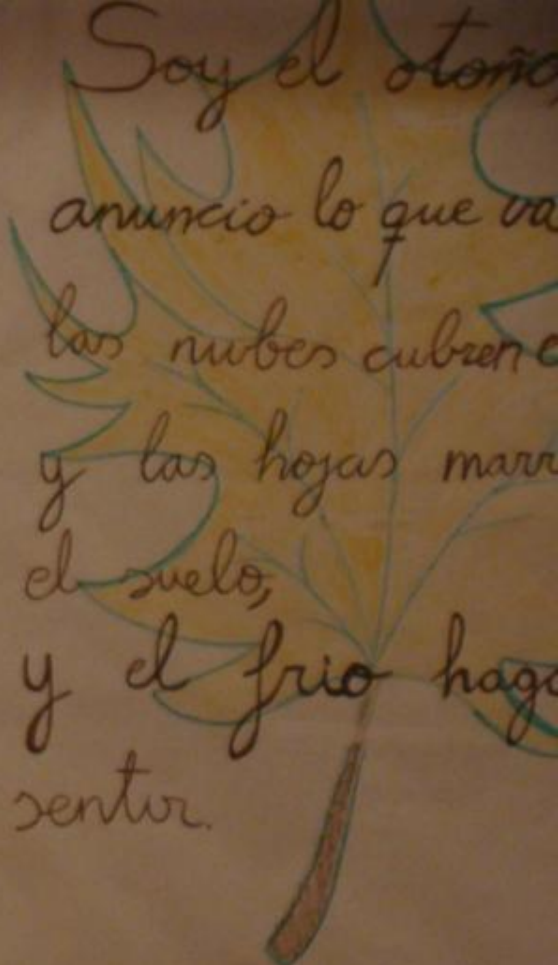 Soy el otoño
anuncio lo que va
las nubes cubren e
y las hojas marr
el suelo,
y el frio hago
sentir.